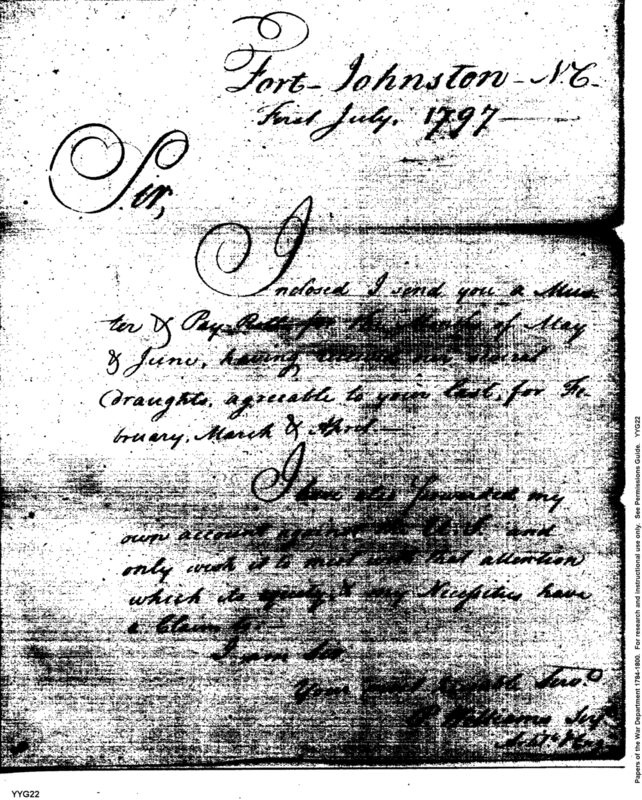 Fort Johnston N.C.
First July, 1797
Sir,
Inclosed I send you a Mus-
ter & Pay Rolls for the Month of May
& June, having received no
draughts, agreeable to your last, for Fe-
bruary, March & April
I have also forwarded my
own account against the U. S. and
only wish it to meet with that attention
which its equity & my Necessities have
a Claim to.
I am Sir
Your most humble Serv.t
Williams
YYG22
Papers of the War Department 1784-1800. For research and instructional use only. See Permissions Guide. YYG22